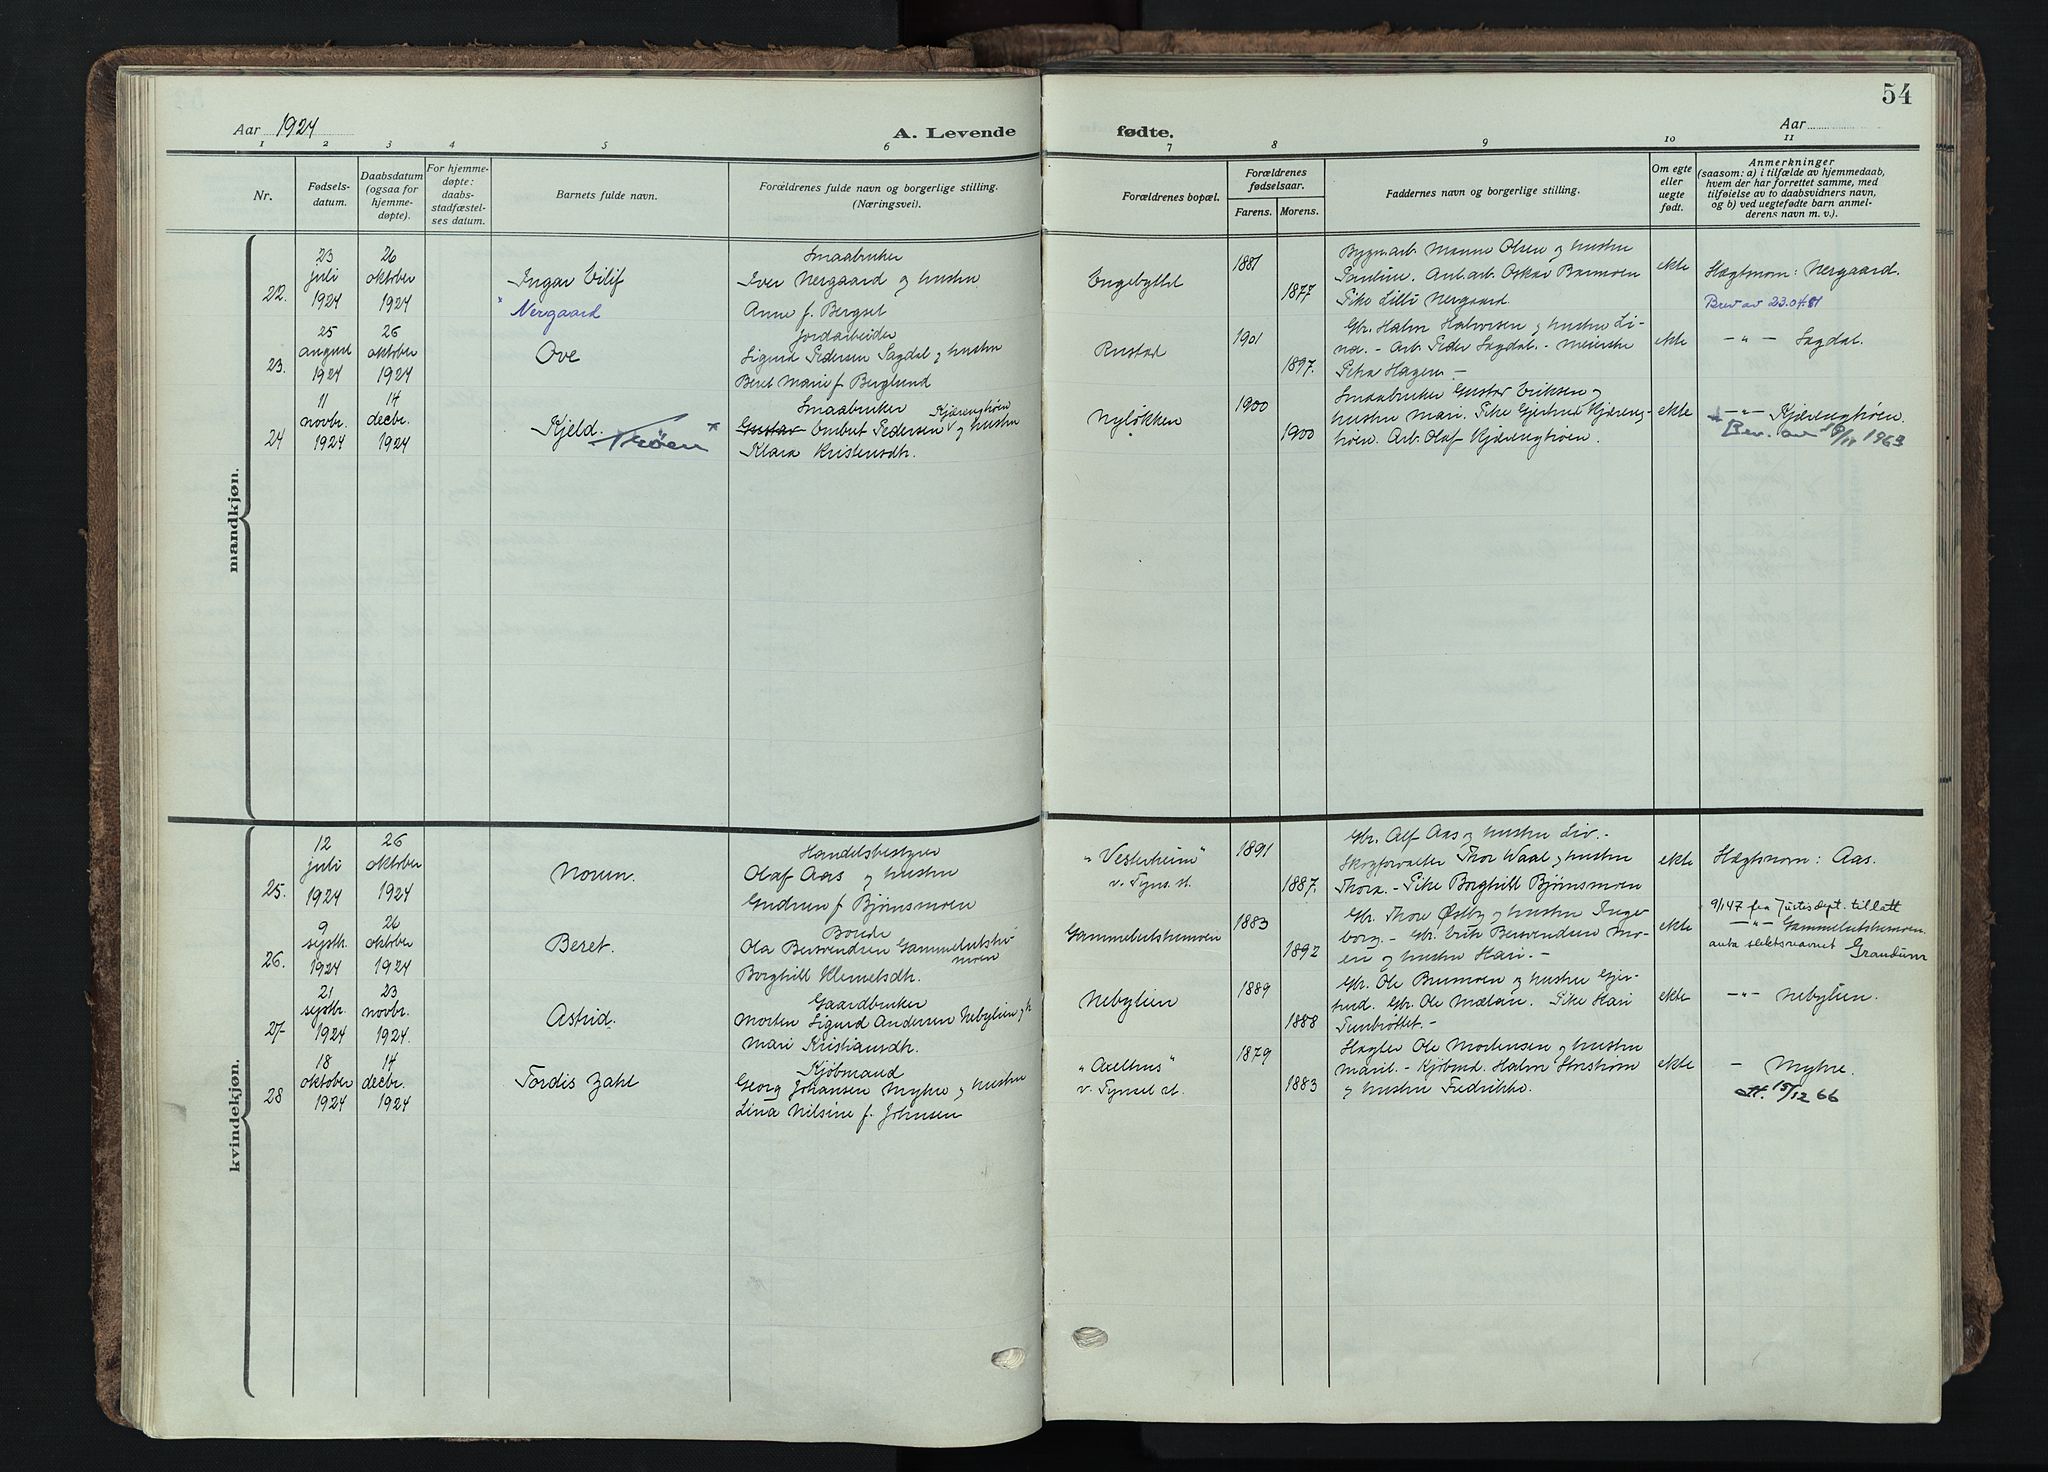 54
Aar 1924
A. Levende fødte.
Aar
1 2 3 4 5 6 7 8 9 10 11
Nr.
Fødsels-
datum.
Daabsdatum
(ogsaa for
hjemme-
døpte).
For hjemme-
døpte:
daabs-
stadfæstel-
ses datum.
Barnets fulde navn.
Forældrenes fulde navn og borgerlige stilling.
(Næringsvei).
Forældrenes bopæl.
Forældrenes
fødselsaar.
Farens. Morens.
Faddernes navn og borgerlige stilling.
Om egte
eller
uegte
født.
Anmerkninger
(saasom: a) i tilfælde av hjemmedaab,
hvem der har forrettet samme, med
tilføielse av to daabsvidners navn,
og b) ved uegtefødte barn anmel-
derens navn m. v.).
mandkjøn.
22.
23
juli
1924
26
oktober
1924
Ingar Eilif
" Nergaard
Smaabruker
Iver Nergaard og hustru
Anne f. Bergset
Engebyllet
1881
1877
Bygn.arb. Manne Olsen og hustru
Pauline. Anl.arb. Oskar Barmoen
Pike Lilli Nergaard
ekte
Slægtsnavn: Nergaard.
Brev av 23.04.81
23.
25
august
1924
26
oktober
1924
Ove
Jordarbeider
Sigurd Pedersen Sagdal og hustru
Beret Marie f. Berglund
Rustad
1901
1897.
Gbr. Halvor Halvorsen og hustru Li-
na. - Arb. Peder Sagdal. - Meierske
Petra Hagen -
ekte
— " — Sagdal.
24
11
novbr.
1924
14
decbr.
1924
Kjeld. Trøen *
Smaabruker
Gustav Embret Pedersen Kjærenghøen og hustru
Klara Kristensdtr.
Nyløkken
1900
1900
Smaabruker Gustav Eriksen og
hustru Mari. Pike Gjertrud Kjæreng-
høen. Arb. Olaf Kjærenghøen.
ekte
— " — Kjærenghøen.
Bev. av 18/11 1963
kvindekjøn.
25.
12
juli
1924
26
oktober
1924
Norun.
Handelsbestyrer
Olaf Aas og hustru
Gudrun f. Bjørnsmoen
"Vesterheim"
v. Tyns. st.
1891
1887.
Gbr. Alf Aas og hustru Liv. -
Skogforvalter Thor Waal og hustru
Thora. - Pike Borghill Bjørnsmoen
ekte
Slægtsnavn: Aas.
26.
9
septbr.
1924
26
oktober
1924
Beret.
Bonde
Ola Bersvendsen Gammelutstu-
moen
Borghill Klemetsdtr.
Gammelutstumoen
1883
1892
Gbr. Thore Østby og hustru Inge-
borg. - Gbr. Erik Bersvendsen Mo-
en og hustru Hari. -
ekte
9/1 47 fra Justisdept. tillatt
— " — Gammelutstumoen.
anta slektsnavnet Grandum
27
21
septbr.
1924
23
novbr.
1924.
Astrid.
Gaardbruker
Morten Sigurd Andersen Nebylien og h.
Mari Kristiansdtr.
Nebylien
1889
1888
Gbr. Ole Brumoen og hustru Gjer-
trud. Gbr. Ole Mælan. Pike Hari
Tunbrottet. -
ekte
— " — Nebylien.
28
18
oktober
1924
14
decbr.
1924
Tordis Zahl
Kjøbmand
Georg Johansen Myhre og hustru
Lina Nilsine f. Johnsen
"Axelhus"
v. Tynset st.
1879
1883
Slagter Ole Mortensen og hustru
Marit. - Kjøbmd. Halvor
og hustru Fredrikke.
ekte
— Myhre.
15/12 66